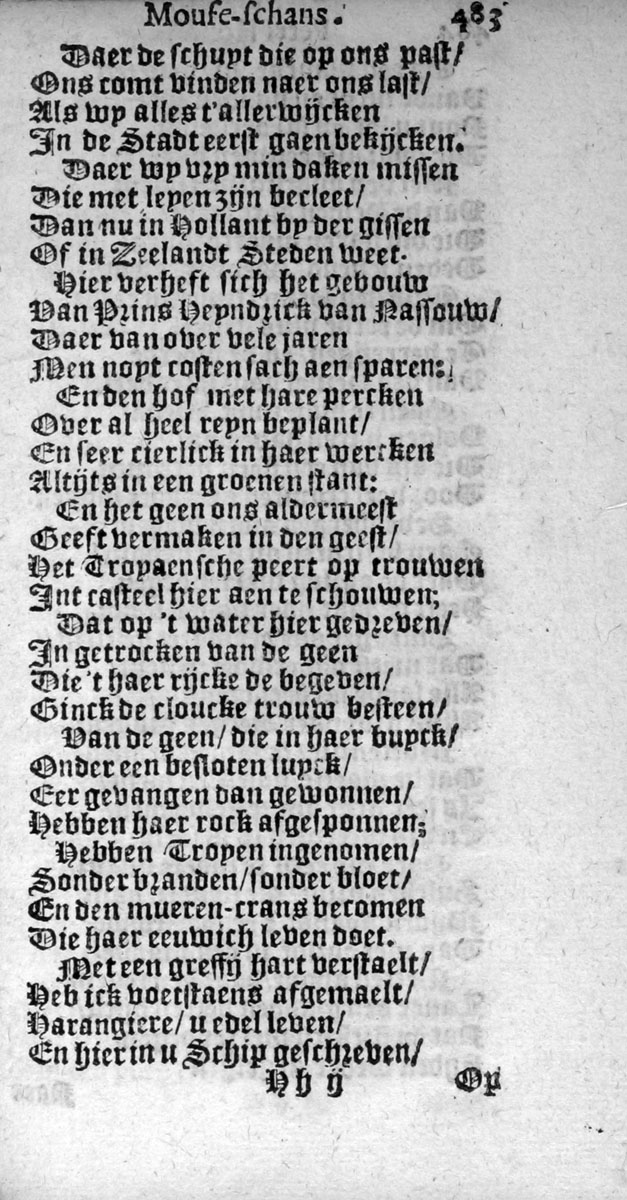 Mouse-schans. 483
Daer de schupt die op ons past/
Ons comt vinden naer ons last/
Als wy alles t'allerwijcken
In de Stadt eerst gaen bekijcken.
Daer wy vry min daken missen
Die met leyen zijn becleet/
Dan nu in Hollant by der gissen
Of in Zeelandt Steden weet.
Hier verheft sich het gebouw
Van Prins Heyndrick van Nassouw/
Daer van over vele jaren
Men noyt costen sach aen sparen:
En den hof met hare percken
Over al heel reyn beplant/
En seer cierlick in haer wercken
Altijts in een groenen stant:
En het geen ons aldermeest
Geeft vermaken in den geest/
Het Tropaensche peert op trouwen
Int casteel hier aen te schouwen;
Dat op 't water hier gedreven/
In getrocken van de geen
Die 't haer rijcke de begeven/
Ginck de cloucke trouw besteen/
Van de geen/ die in haer buyck/
Onder een besloten luyck/
Eer gevangen dan gewonnen/
Hebben haer rock afgesponnen;
Hebben Tropen ingenomen/
Sonder branden/ sonder bloet/
En den mueren-crans becomen
Die haer eeuwich leven doet.
Met een greffij hart verstaelt/
Heb ick voetstaens afgemaelt/
Harangiere/ u edel leven/
En hier in u Schip geschreven/
Hh ij Op